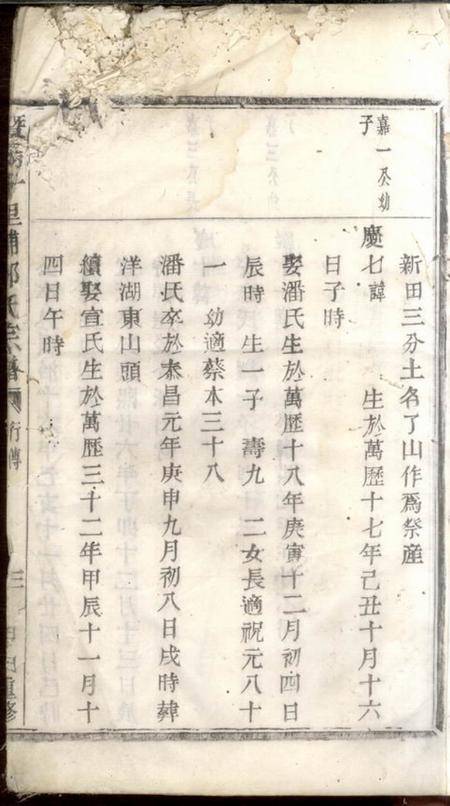 新田三分土名了山作爲祭産
嘉一公幼
子
慶七諱 生於萬歷十七年己丑十月十六
日子時
娶潘氏生於萬歷十八年庚寅十二月初四日
辰時 生一子 壽九 二女長適祝元八十
一 幼適蔡本三十八
潘氏卒於泰昌元年庚申九月初八日戌時葬
洋湖東山頭
續娶宣氏生於萬歷三十二年甲辰十一月十
四日午時
里浦 氏宗譜 行傳
三
重修